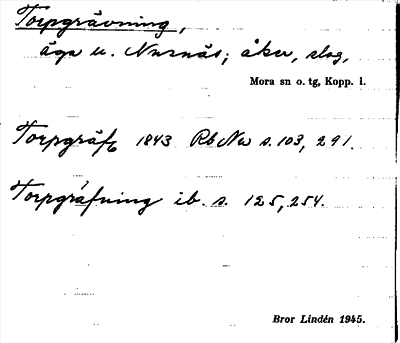 Torpgrävning,
äga u. Nusnäs; åker, slog,
Mora sn o. tg, Kopp. l.
Torpgräfg 1843 Rb Nw s. 103, 291.
Torpgräfning ib. s. 125, 254.
Bror Lindén 1945.